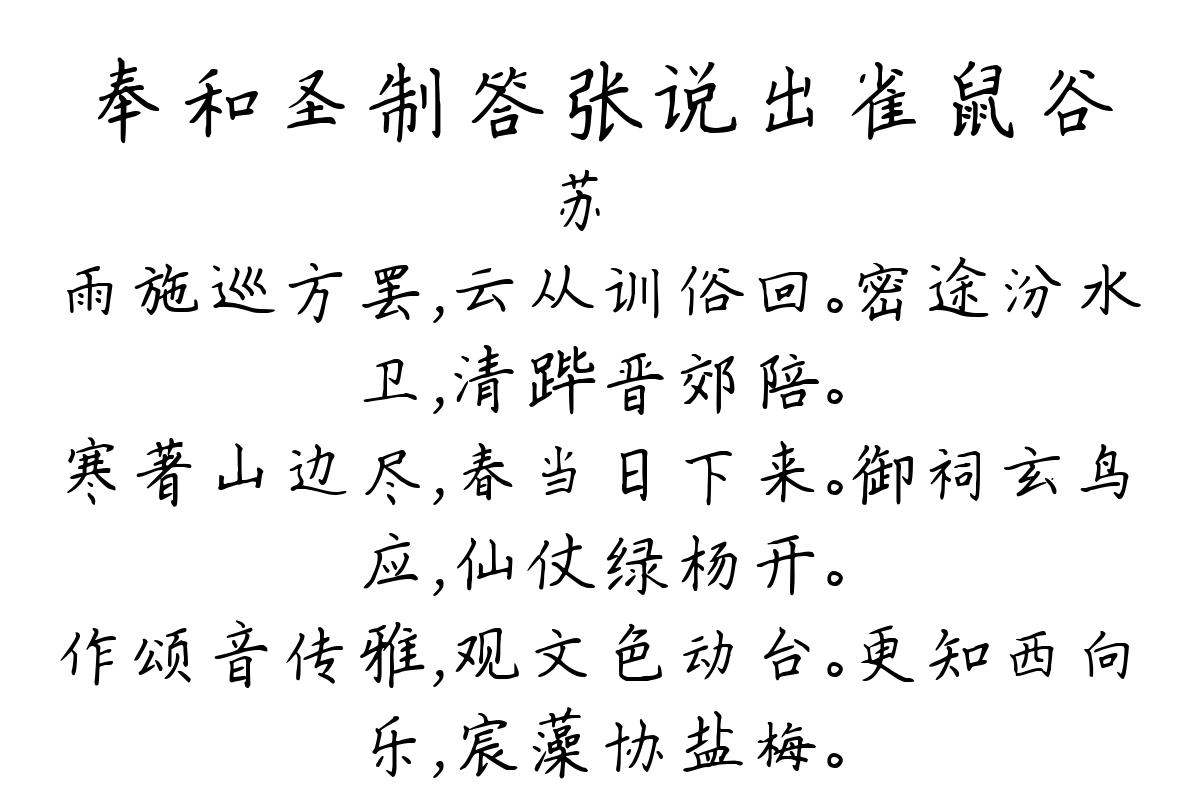 奉和圣制答张说出雀鼠谷
苏
雨施巡方罢,云从训俗回。密途汾水
卫,清跸晋郊陪。
寒著山边尽,春当日下来。御祠玄鸟
应,仙仗绿杨开。
作颂音传雅,观文色动台。更知西向
乐,宸藻协盐梅。